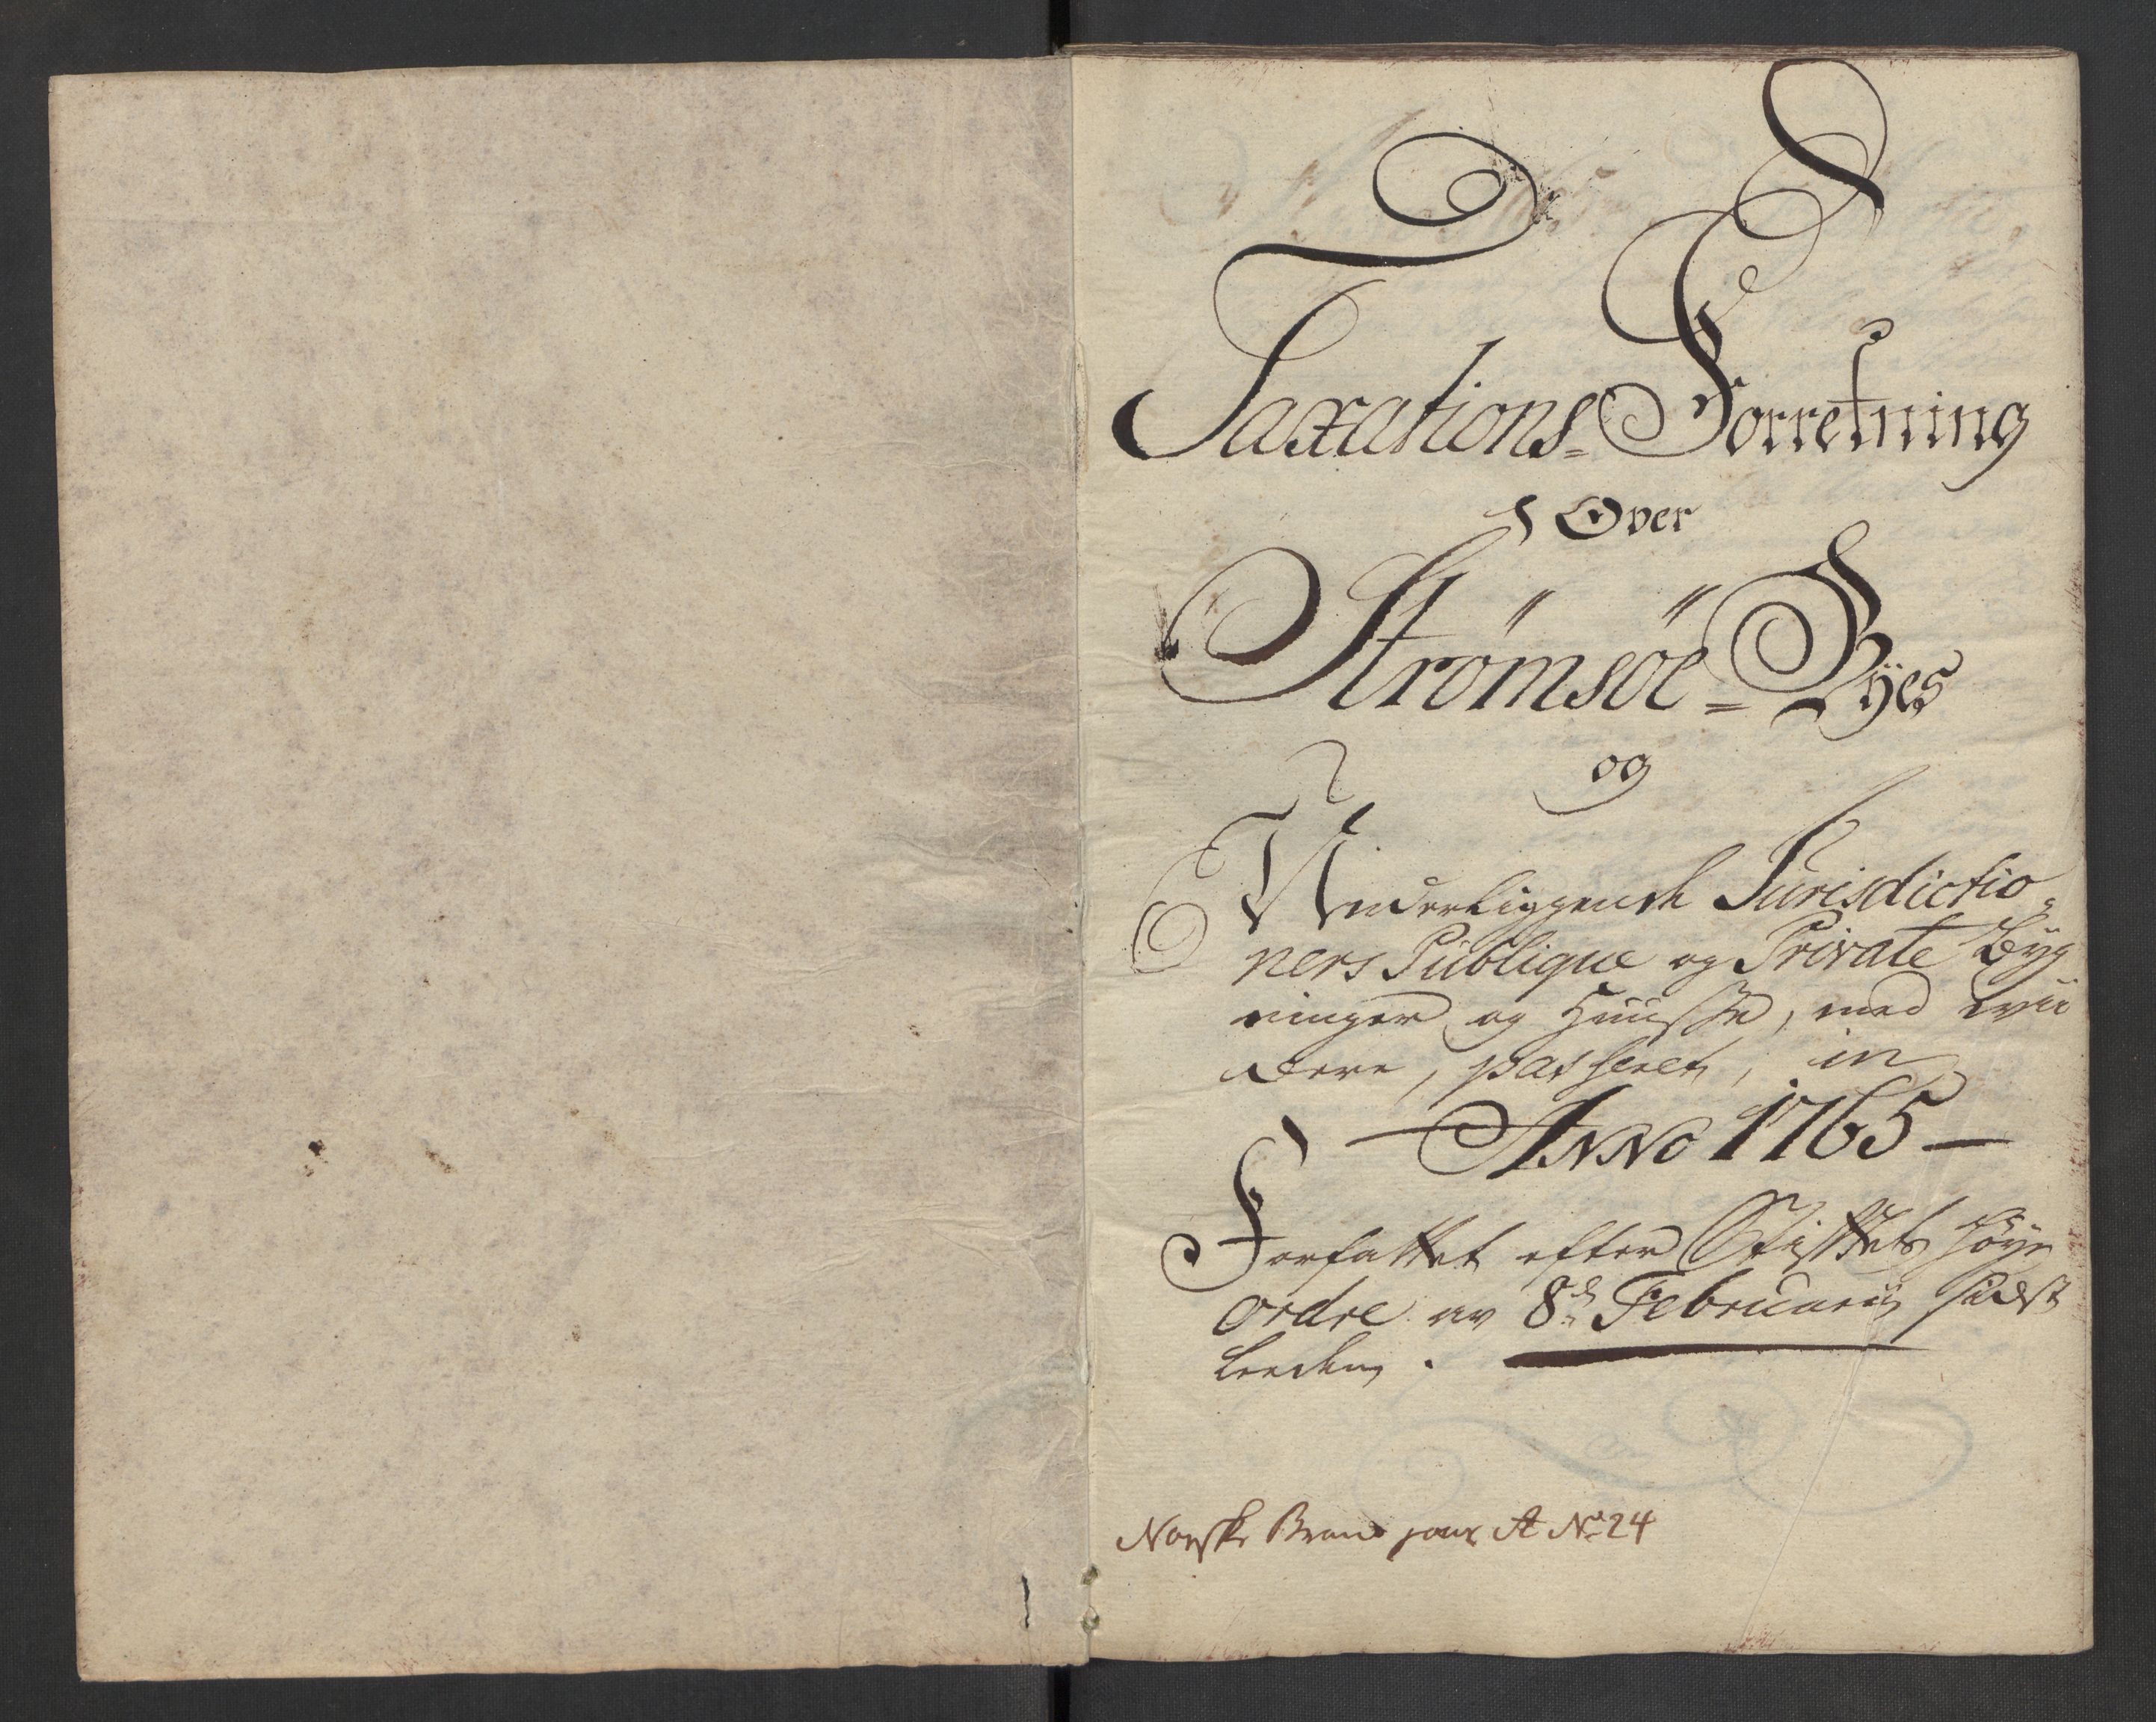 Taxations=Forretning
Over
Strömsöe=Byes
og
Underliggende Jurisdictio=
ners Publique og Private Byg
ninger og Huusse, med vii
dere, passeret, in
Anno 1765
Forfattet efter Stiftets høye
ordre av 8de Februarii sidst
leeden.
Norske Brand A No 24